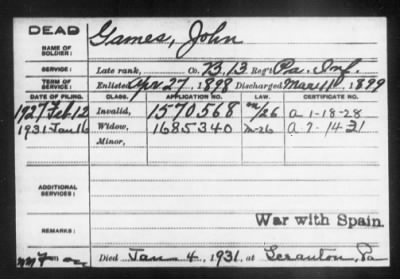 DEAD
NAME OF SOLDIER: Games, John
SERVICE: Late rank, Co. B. 13 Reg't Pa. Inf.
TERM OF SERVICE: Enlisted Apr 27, 1898 Discharged Mar 11, 1899
DATE OF FILING. CLASS. APPLICATION NO. LAW. CERTIFICATE NO.
1927 Feb 12 Invalid, 1570568 m/26 a 1-18-28
1931 Jan 16 Widow, 1685340 m-26 a 7-14 31
Minor,
ADDITIONAL SERVICES:
War with Spain.
REMARKS:
Died Jan 4, 1931, at Scranton, Pa